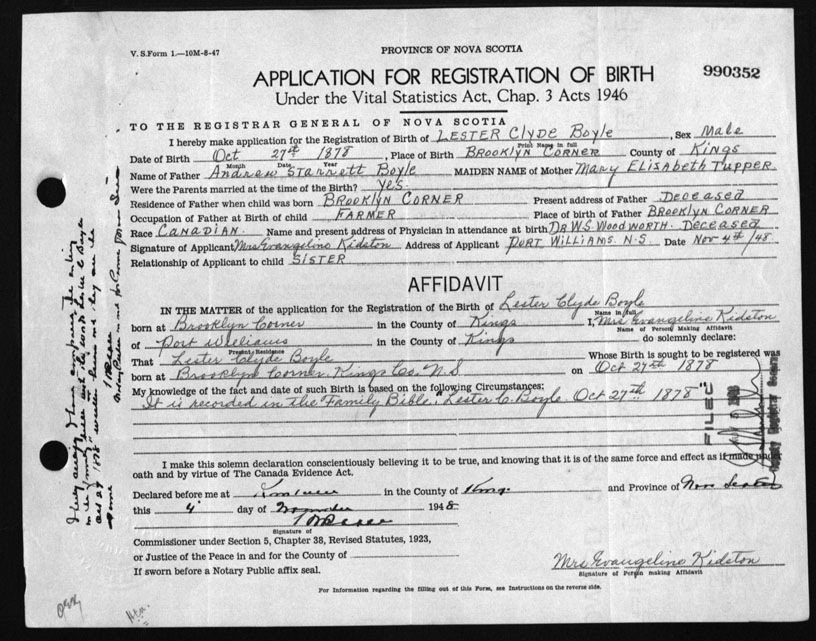 V. S. Form 1.—10M-8-47
PROVINCE OF NOVA SCOTIA
APPLICATION FOR REGISTRATION OF BIRTH
990352
Under the Vital Statistics Act, Chap. 3 Acts 1946
TO THE REGISTRAR GENERAL OF NOVA SCOTIA
I hereby make application for the Registration of Birth of LESTER Clyde Boyle, Sex Male
Print Name in full
Date of Birth Oct 27th 1878, Place of Birth BROOKLYN CORNER County of Kings
Month Date Year
Name of Father Andrew Starrett Boyle MAIDEN NAME of Mother Mary Elisabeth Tupper
Were the Parents married at the time of the Birth? Yes.
Residence of Father when child was born BROOKLYN CORNER Present address of Father Deceased
Occupation of Father at Birth of child FARMER Place of Birth of Father BROOKLYN CORNER
Race CANADIAN. Name and present address of Physician in attendance at birth DR W.S. WOODWORTH. Deceased
Signature of Applicant Mrs Evangeline Kidston Address of Applicant PORT WILLIAMS. N.S. Date Nov 4th/48.
Relationship of Applicant to child SISTER
AFFIDAVIT
IN THE MATTER of the application for the Registration of the Birth of Lester Clyde Boyle
Name in full
born at Brooklyn Corner in the County of Kings I, Mrs Evangeline Kidston
Name of Person Making Affidavit
of Port Williams in the County of Kings do solemnly declare:
Present Residence
That Lester Clyde Boyle Whose Birth is sought to be registered was
born at Brooklyn Corner. Kings Co. N.S on Oct 27th 1878
My knowledge of the fact and date of such Birth is based on the following Circumstances:
It is recorded in the "Family Bible," Lester C. Boyle. Oct 27th 1878
FILED
I make this solemn declaration conscientiously believing it to be true, and knowing that it is of the same force and effect as if made under
oath and by virtue of The Canada Evidence Act.
Declared before me at in the County of Kings and Province of Nova Scotia
this 4 day of November 1948
Signature of
Commissioner under Section 5, Chapter 38, Revised Statutes, 1923,
or Justice of the Peace in and for the County of
If sworn before a Notary Public affix seal.
Mrs Evangeline Kidston
Signature of Person making Affidavit
For Information regarding the filling out of this Form, see Instructions on the reverse side.